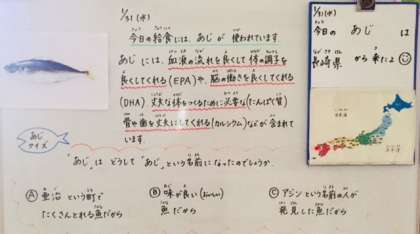 1/31(水)
今日の給食には、あじが 使われています。
あじ には、血液の流れを良くして体の調子を
良くしてくれる(EPA)や、脳の働きを良くしてくれる
(DHA) 丈夫な体をつくるために必要な(たんぱく質)
骨や歯を丈夫にしてくれる(カルシウム)などが 含まれて
います。
あじ
クイズ
「あじ」は どうして「あじ」という名前になったのでしょうか。
Ⓐ 亜治 という町で
たくさんとれる魚だから
Ⓑ 味が良い(おいしい)
魚 だから
Ⓒ アジン という名前の人が
発見した魚だから
1/31(水)
今日の あじ は
長崎県 から来たよ